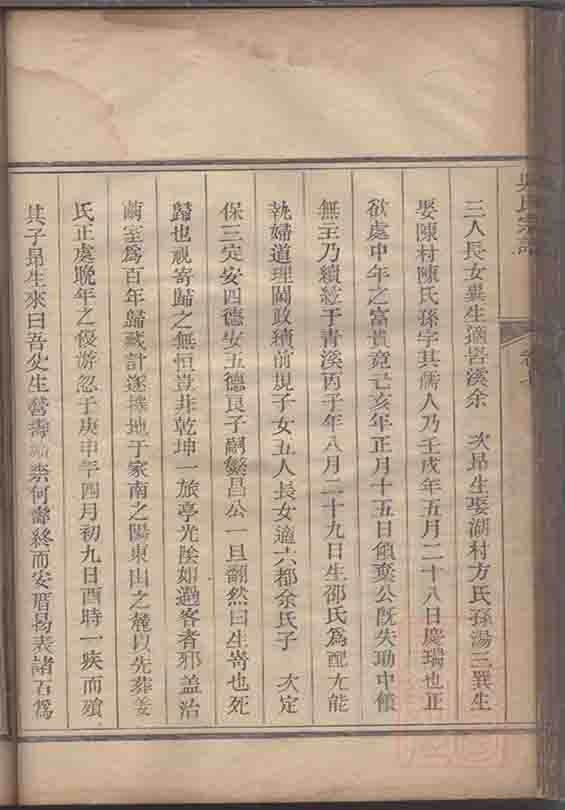 吳氏宗譜
三人長女異生適碧溪余 次昂生娶湖村方氏孫湯三異生
娶陳村陳氏孫字其孺人乃壬戌年五月二十八日慶瑞也正
欲處中年之富貴竟己亥年正月十五日傾棄公既失助中饋
無主乃續絃于青溪丙子年八月二十九日生邵氏為配尤能
執婦道理閫政續前規子女五人長女適六都余氏子 次定
保三定安四德安五德良子嗣繁昌公一旦翻然曰生寄也死
歸也視寄歸之無恒豈非乾坤一旅亭光陰如過客者邪盖治
窀室為百年歸藏計遂擇地于家南之陽東山之麓以先葬姜
氏正處晚年之優游忽于庚申年四月初九日酉時一疾而殞
其子昂生來曰吾父生營壽 柰何壽終而安厝曷表諸石為